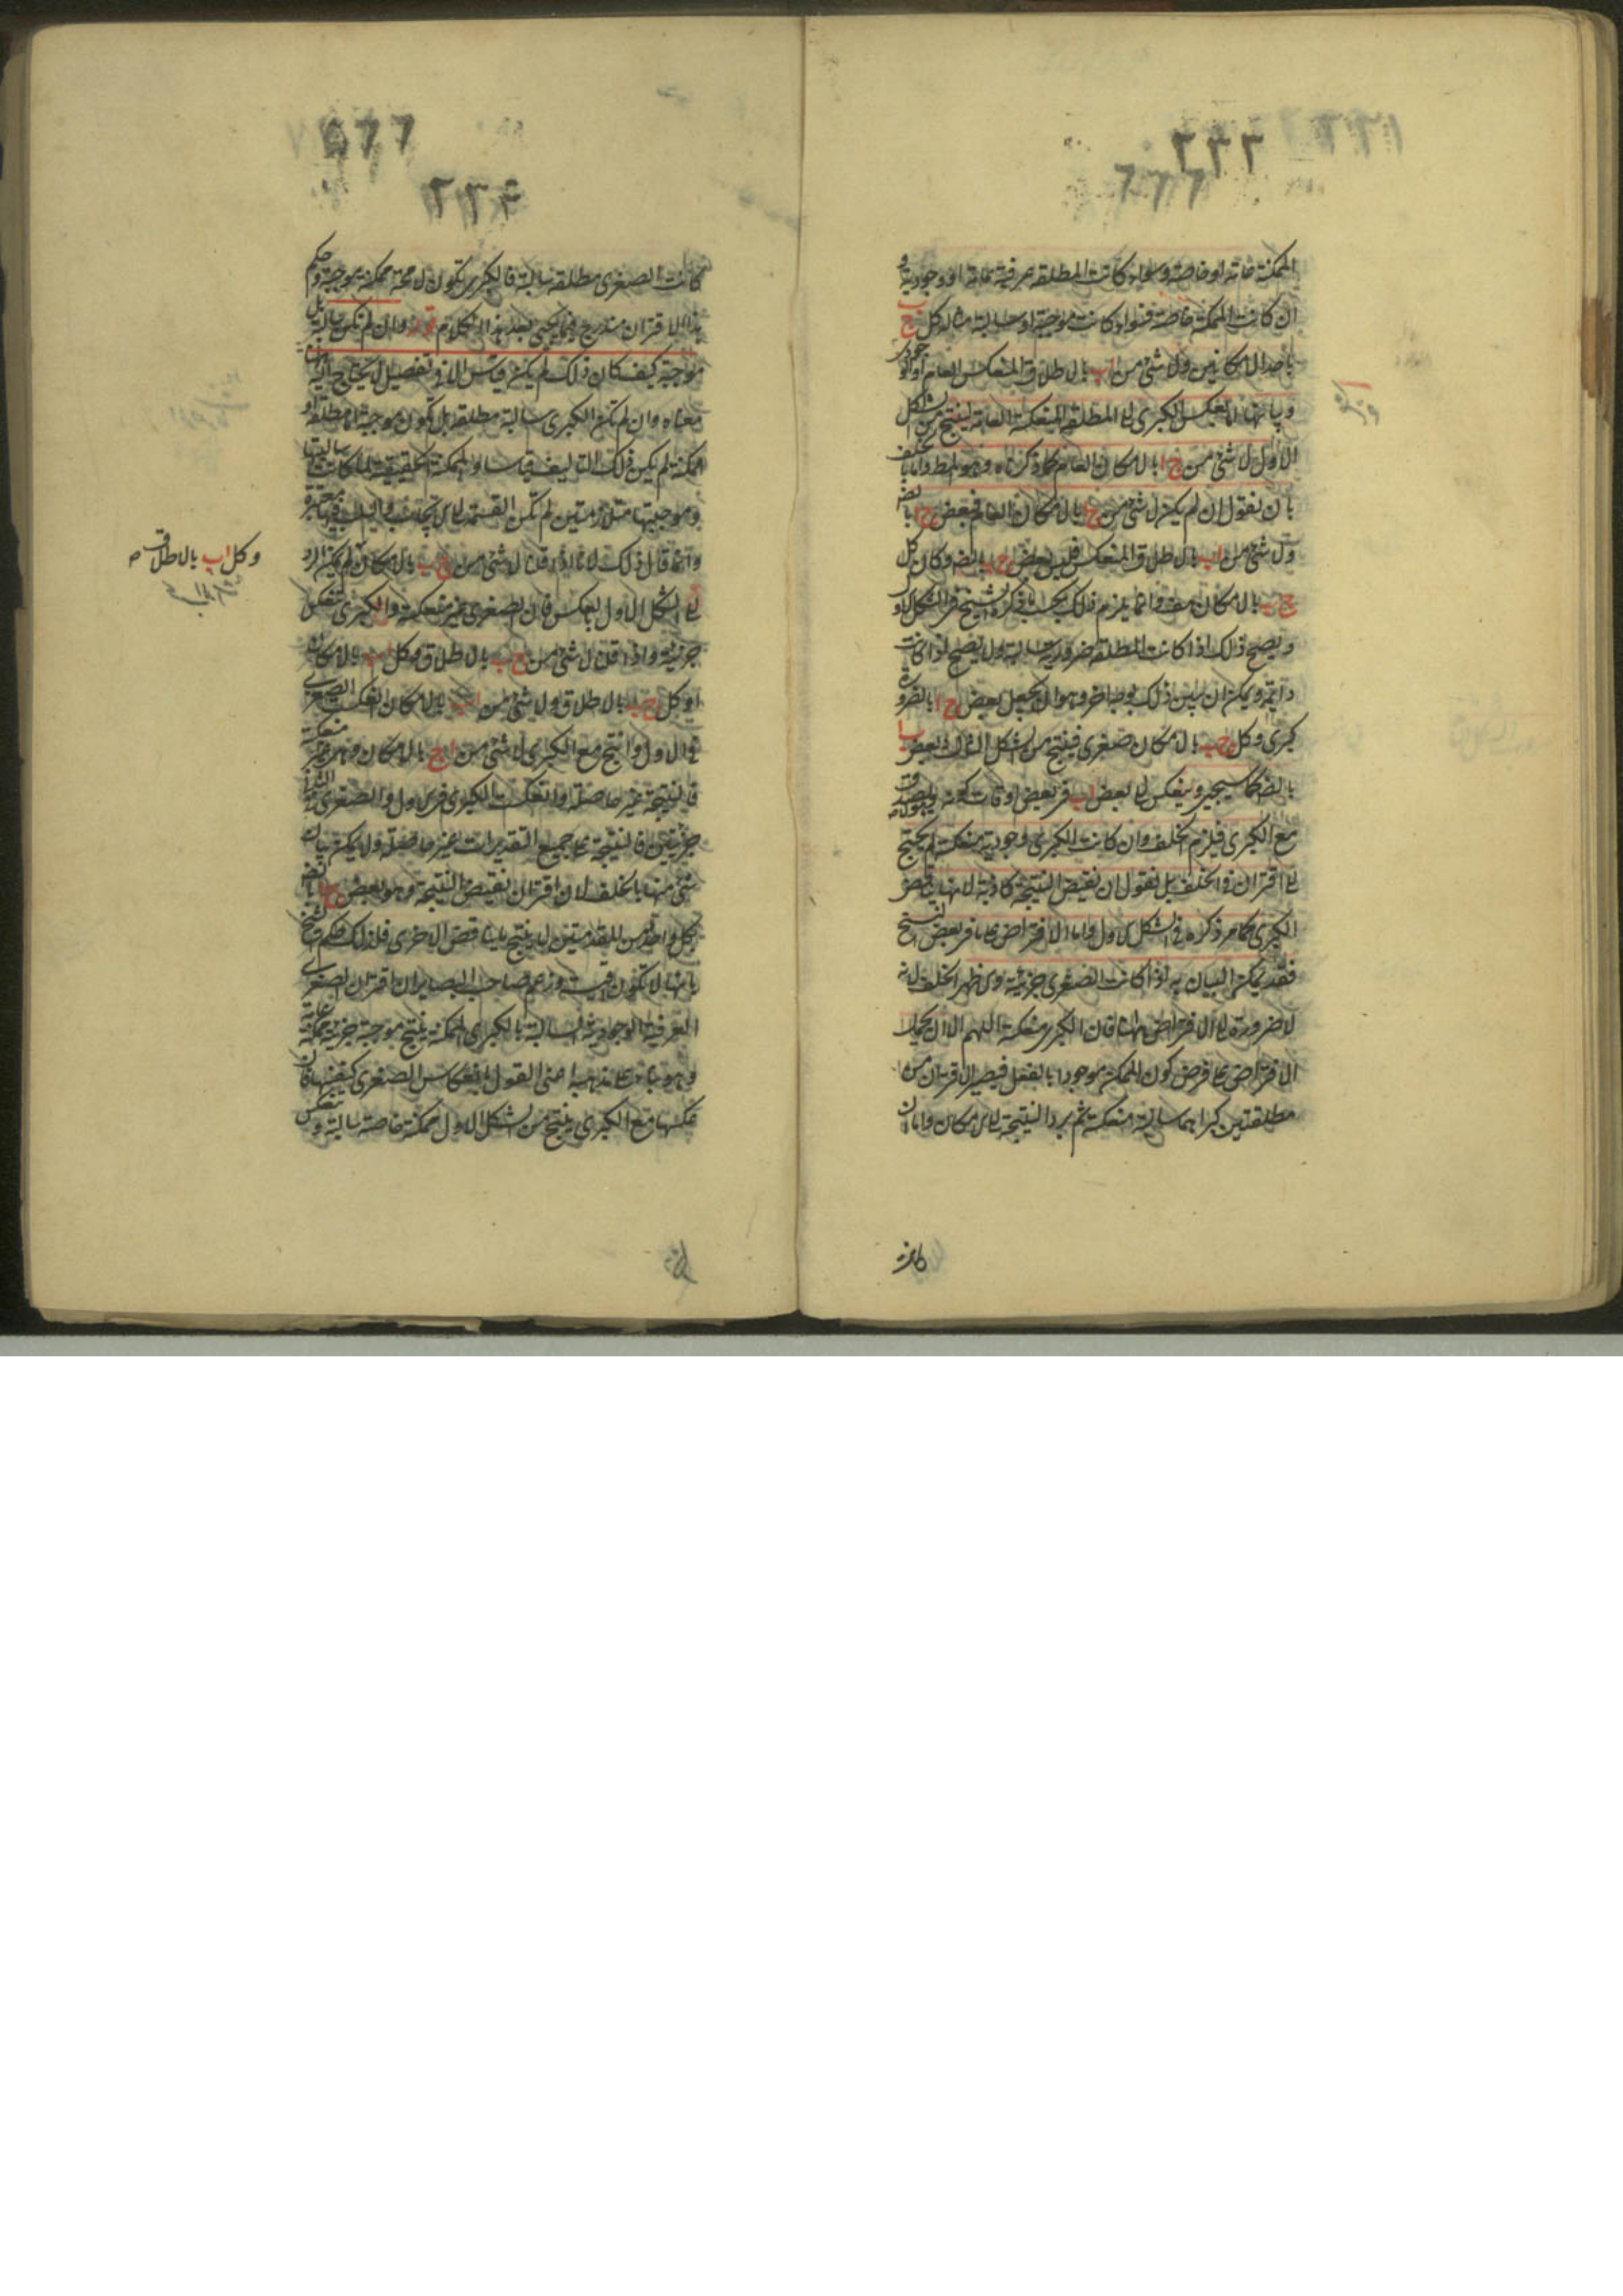 الممكنة عامة او خاصة وسواء كانت المطلقة عرفية عامة او وجودية و
ان كانت الممكنة خاصة فسواء كانت موجبة او سالبة مثاله كل ج ب
باحد الامكانين ولا شئ من اب بالاطلاق المنعكس العام او الوجودى
وبيانها لانعكس الكبرى الى المطلقة المنعكسة العامة لينتج من الشكل
الاول لا شئ من ج ا بالامكان العام كما ذكرناه وهو المط واما بالخلف
بان نقول ان لم يكن لا شئ من ج ا بالامكان العام فبعض ج ا بالضر
ولا شئ من اب بالاطلاق المنعكس فليس بعض ج ب بالضر وكان كل
ج ب بالامكان هف وانما يلزم ذلك بحسب ما ذكره الشيخ فى الشكل الاول
ويصح ذلك اذا كانت المطلقة ضرورية سالبة ولا يصح اذا كانت
دائمة ويمكن ان يبين ذلك بوجه اخر وهو ان يجعل بعض ج ا بالضرورة
كبرى وكل ج ب بالامكان صغرى فينتج من الشكل الثالث بعض ب ا
بالضر كما سيجئ وينعكس الى بعض اب فى بعض اوقات كونه ا
مع الكبرى فيلزم الخلف وان كانت الكبرى وجودية منعكسة لم يحتج
الى اقتران فى الخلف بل نقول ان نقيض النتيجة كاذبة لانها يناقض
الكبرى كما مر ذكره فى الشكل الاول واما الافتراض على ما فى بعض النسخ
فقد يمكن البيان به اذا كانت الصغرى جزئية
لا ضرورة الى الافتراض هاهنا فان الكبرى منعكسة اللهم الا ان يحمل
الافتراض على فرض كون الممكن موجودا بالفعل فيصير الاقتران من
مطلقتين كبراهما سالبة منعكسة ثم يرد النتيجة الى الامكان واما ان
كانت
كانت الصغرى مطلقة سالبة فالكبرى تكون لا محة ممكنة موجبة وحكم
هذا الاقتران مندرج فيما يجئ بعد هذا الكلام قوله وان لم تكن سالبة بل
موجبة كيف كان ذلك لم يكن قياس الا فى تفصيل لا يحتاج اليه
معناه وان لم تكن الكبرى سالبة مطلقة بل تكون موجبة اما مطلقة او
ممكنة لم يكن ذلك التاليف قياسا والممكنة الحقيقية لما كانت سالبتها
وموجبتها متلازمتين لم تكن القسمة الى الايجاب والسلب فيها معتبرة
وانما قال ذلك لانا اذا قلنا لا شئ من ج ب بالامكان لم يمكن الرد
وكل اب بالاطلاق صح
الى الشكل الاول بالعكس فان الصغرى غير منعكسة والكبرى تنعكس
جزئية واذا قلنا لا شئ من ج ب بالاطلاق وكل اب بالامكان
او كل ج ب بالاطلاق ولا شئ من اب بالامكان انعكست الصغرى
فى الاول وانتج مع الكبرى لا شئ من ا ج بالامكان وهو غير منعكسة
فالنتيجة غير حاصلة وانعكست الكبرى فى الاول والصغرى فى الثانى
جزئيتين فالنتيجة على جميع التقديرات غير حاصلة ولا يمكن بيان
شئ منها بالخلف لان اقتران نقيض النتيجة وهو بعض ج ا بالضر
بكل واحد من المقدمتين لا ينتج ما يناقض الاخرى فلذلك حكم الشيخ
بانها لا تكون قياسا وزعم صاحب البصائر ان اقتران الصغرى
العرفية الوجودية السالبة بالكبرى الممكنة ينتج موجبة جزئية ممكنة عامة
وهو بناء على مذهبه اعنى القول بانعكاس الصغرى كنفسها فان
عكسها مع الكبرى ينتج من الشكل الاول ممكنة خاصة سالبة وتنعكس